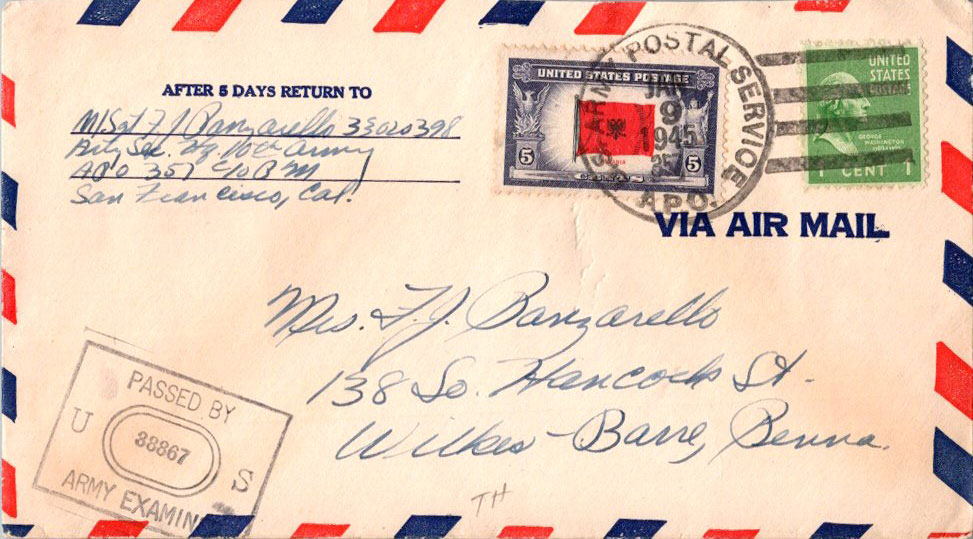 AFTER 5 DAYS RETURN TO
M/Sgt F J Banzarello 33020398
Arty Sec. Hq. 10th Army
APO 357 C/O P M
San Francisco, Cal.
UNITED STATES POSTAGE
5 5
U.S. ARMY POSTAL SERVICE
JAN
9
1945
A.P.O.
UNITED
STATES
POSTAGE
GEORGE
WASHINGTON
1 CENT 1
VIA AIR MAIL
Mrs. F. J. Banzarello
138 So. Hancock St.
Wilkes-Barre, Penna.
PASSED BY
U 38867 S
ARMY EXAMIN
TH